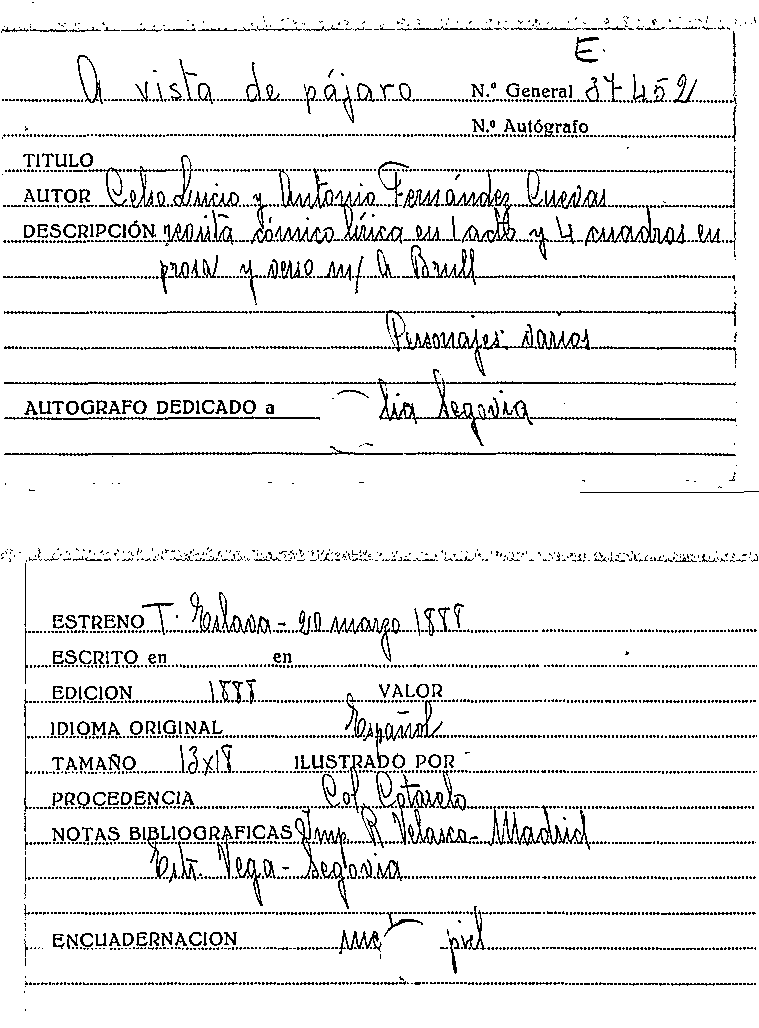 E.
A vista de pájaro N.º General 37452
N.º Autógrafo
TITULO
AUTOR Celso Lucio y Antonio Fernández Cuevas
DESCRIPCIÓN revista cómico lírica en 1 acto y 4 cuadros en
prosa y verso m/ A Brull
Personajes: varios
AUTOGRAFO DEDICADO a Segovia
ESTRENO T. Eslava - 20 marzo 1888
ESCRITO en en
EDICION 1888 VALOR
IDIOMA ORIGINAL Español
TAMAÑO 13x18 ILUSTRADO POR
PROCEDENCIA Col. Cotarelo
NOTAS BIBLIOGRAFICAS Imp. R Velasco - Madrid
Estr. Vega - Segovia
ENCUADERNACION piel